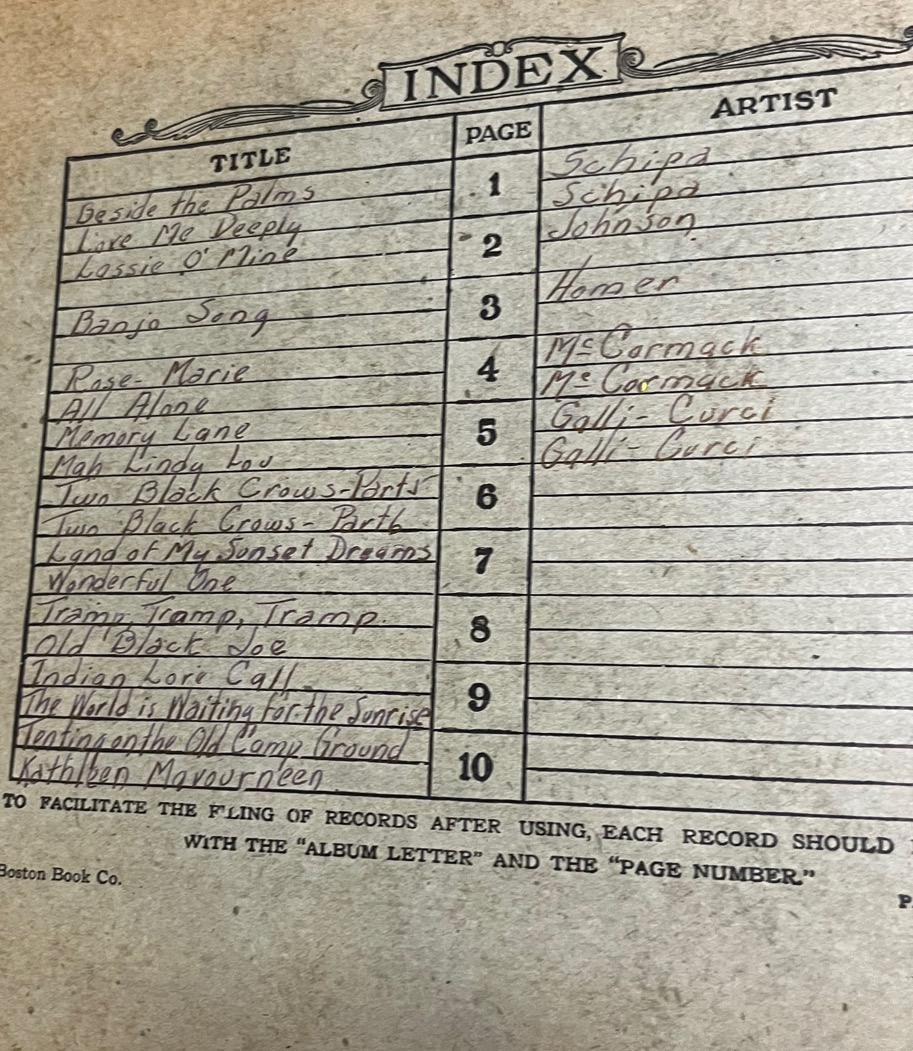 INDEX
TITLE PAGE ARTIST
Beside the Palms 1 Schipa
Love Me Deeply Schipa
Lassie O' Mine 2 Johnson
Banjo Song 3 Homer
Rose-Marie 4 McCormack
All Alone McCormack
Memory Lane 5 Galli-Curci
Mah Lindy Lou Galli-Curci
Two Black Crows-Part5 6
Two Black Crows-Part6
Land of My Sunset Dreams 7
Wonderful One
Tramp, Tramp, Tramp 8
Old Black Joe
Indian Love Call 9
The World is Waiting for the Sunrise
Tenting on the Old Camp Ground 10
Kathleen Mavourneen
TO FACILITATE THE FILING OF RECORDS AFTER USING, EACH RECORD SHOULD
WITH THE "ALBUM LETTER" AND THE "PAGE NUMBER."
Boston Book Co.